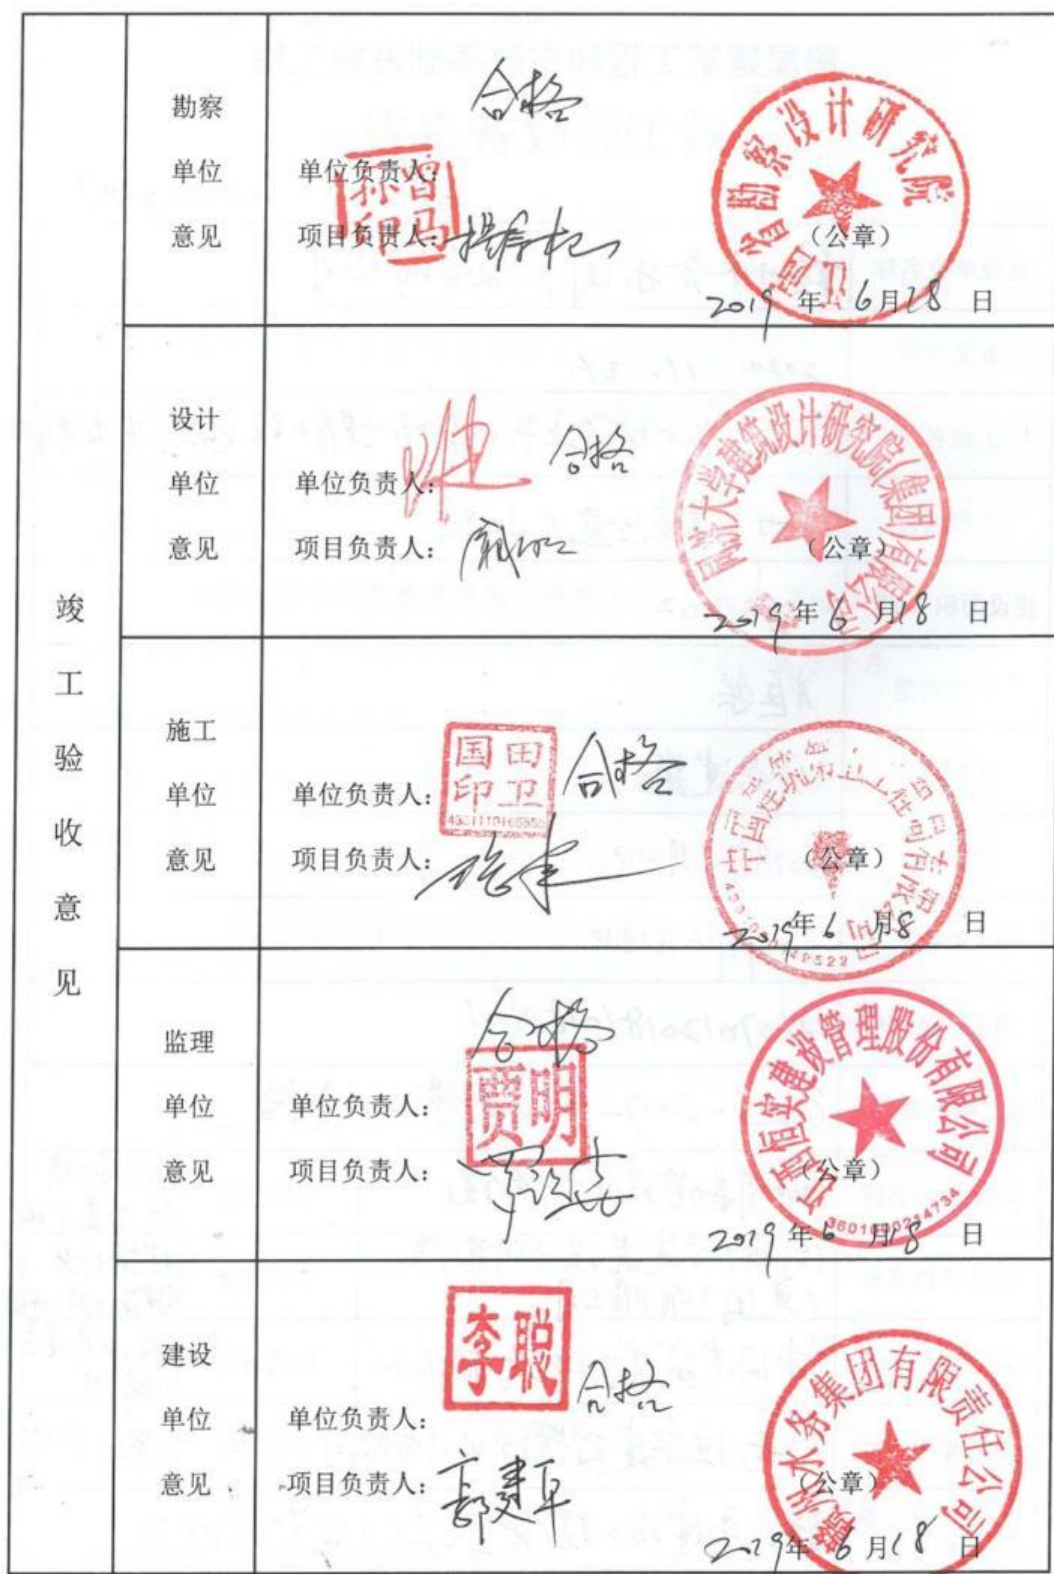 竣工验收意见
勘察单位意见
合格
单位负责人：
曾马孙印
项目负责人：
江西省勘察设计研究院
（公章）
2019年6月18日
设计单位意见
合格
单位负责人：
项目负责人：
同济大学建筑设计研究院(集团)有限公司
（公章）
2019年6月18日
施工单位意见
合格
单位负责人：
田卫国印
项目负责人：
（公章）
2019年6月18日
监理单位意见
合格
单位负责人：
贾明
项目负责人：
江西恒实建设管理股份有限公司
3601000214734
（公章）
2019年6月18日
建设单位意见
李聪
合格
单位负责人：
项目负责人：郭建军
赣州水务集团有限责任公司
（公章）
2019年6月18日